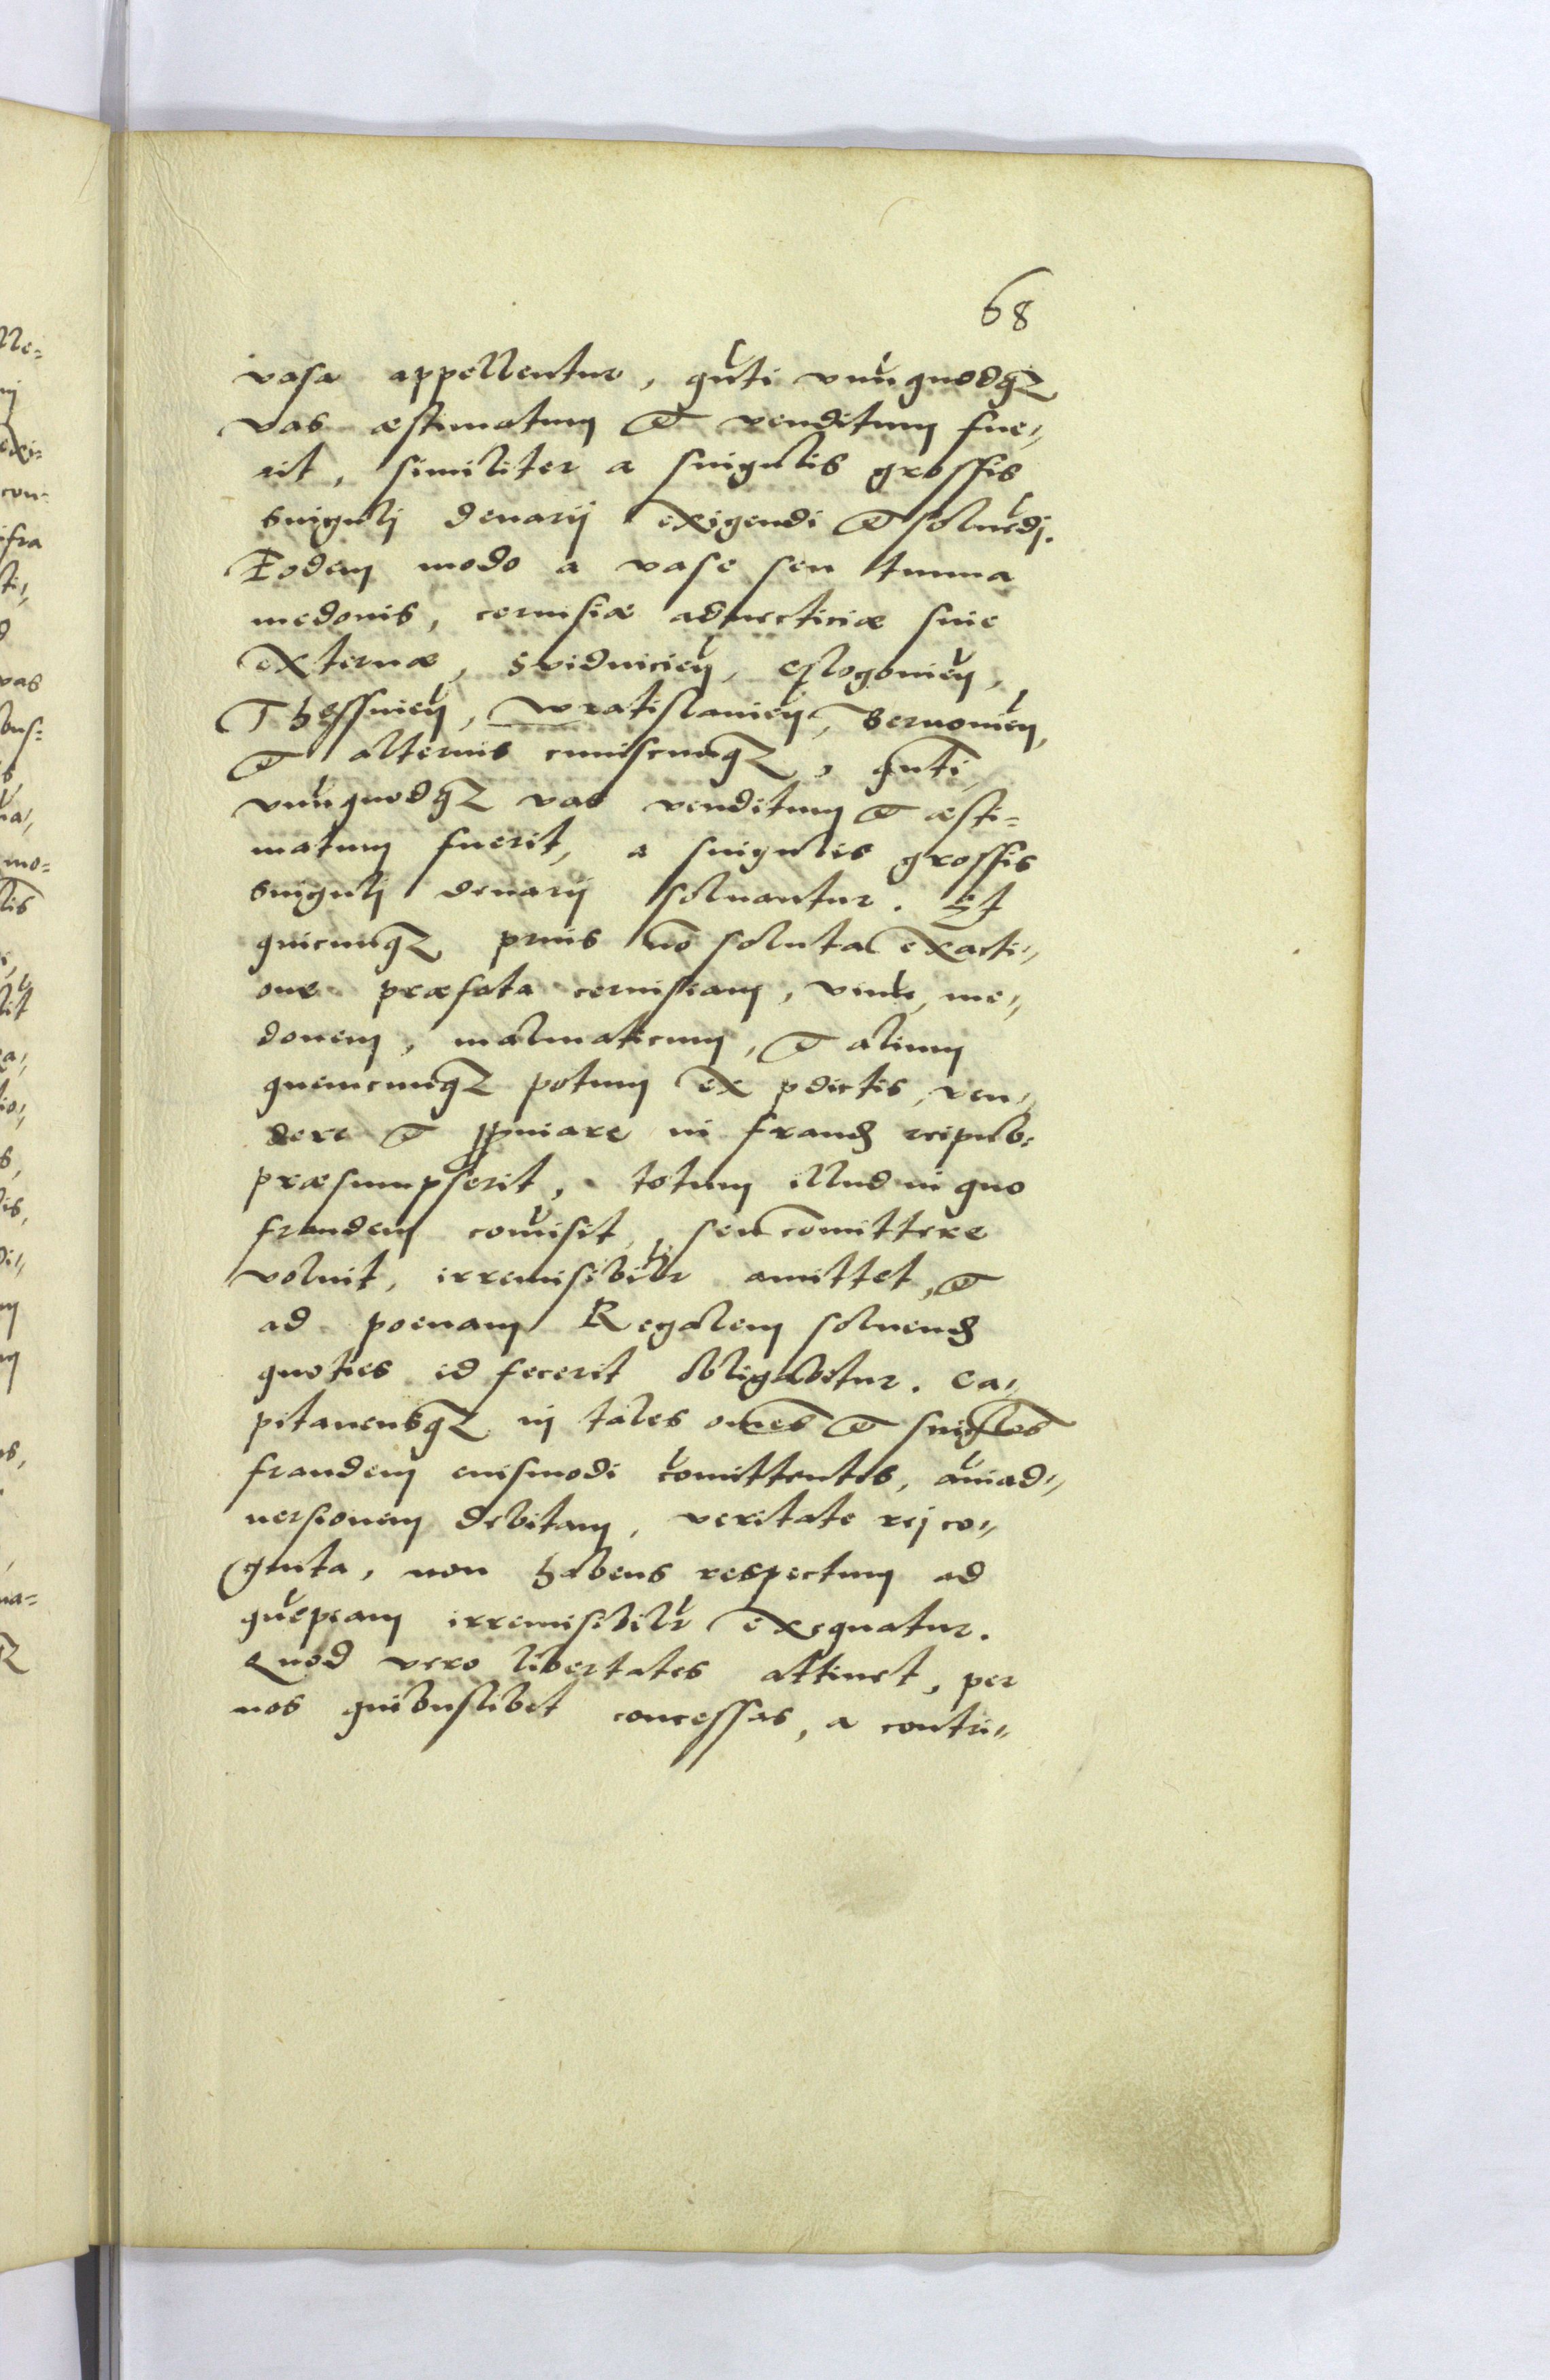 68
vasa appellentur, quāti vnūquodqꝫ
vas æstimatum & venditum fue„
rit, similiter a singulis grossis
singulj denarij exigendi & soluēdj.
Eodem modo a vase seu tunna
medonis, ceruisiæ aduecticiæ siue
externæ, Svidnicień, Glogonień,
Thessnień, Wratislauień, Bernouień,
& alterius cuiuscunqꝫ, quāti
vnūquodqꝫ vas venditum & æsti=
matum fuerit, a singulis grossis
singulj denarij soluantur. Et
quicunqꝫ prius nō soluta exacti„
one præfata ceruisiam, vinū, me„
donem, malmaticum, & alium
quemcunqꝫ potum ex pdictis, ven„
dere & ppinare in fraudē reipub:
præsumpserit, totum illud in quo
fraudem com̄isit, seu com̄ittere
voluit, irremisibilr amittet, &
ad poenam Regalem soluendā
quoties id fecerit obligabitur. Ca„
pitaneusqꝫ in tales omēs & singlos
fraudem eiusmodi com̄ittentes, aīad„
uersionem debitam, veritate rej co„
gnita, non habens respectum ad
quēpiam irremisibilr exequatur.
Quod vero libertates attinet, per
nos quibuslibet concessas, a contri„